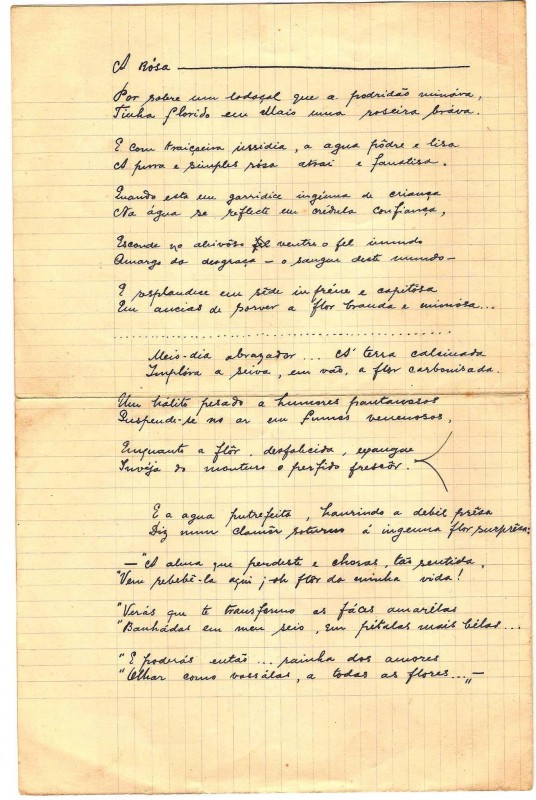 A Rósa
Por sobre um lodaçal que a podridão mináva,
Tinha florido em Maio uma roseira bráva.
E com traiçoeira insidia, a agua pôdre e lisa
A pura e simples rósa atrai e fanatisa.
Quando esta em garridice ingénua de criança
Na água se reflecte em crédula confiança,
Esconde no aleivôso ventre o fel imundo
Amargo da desgraça — o sangue deste mundo —
E resplandece em sêde infréne e capitósa
Em ancias de sorver a flor branda e mimósa...
Meio-dia abrazador... A terra calcinada
Implóra a seiva, em vão, a flor carbonisada.
Um hálito pesado a humores pantanosos
Suspende-se no ar em fumos venenosos,
Emquanto a flôr, desfalecida, exangue
Invéja do monturo o perfido frescôr.
E a agua putrefeita, haurindo a debil prêsa
Diz num clamôr soturno á ingenua flor surprêsa:
— "A alma que perdeste e choras, tão sentida,
"Vem rebebê-la aqui; oh flor da minha vida!
"Verás que te transformo as fáces amarélas
"Banhádas em meu seio, em pétalas mais bélas...
"E poderás então... rainha dos amores
"Olhar como vassálas, a todas as flores..."—